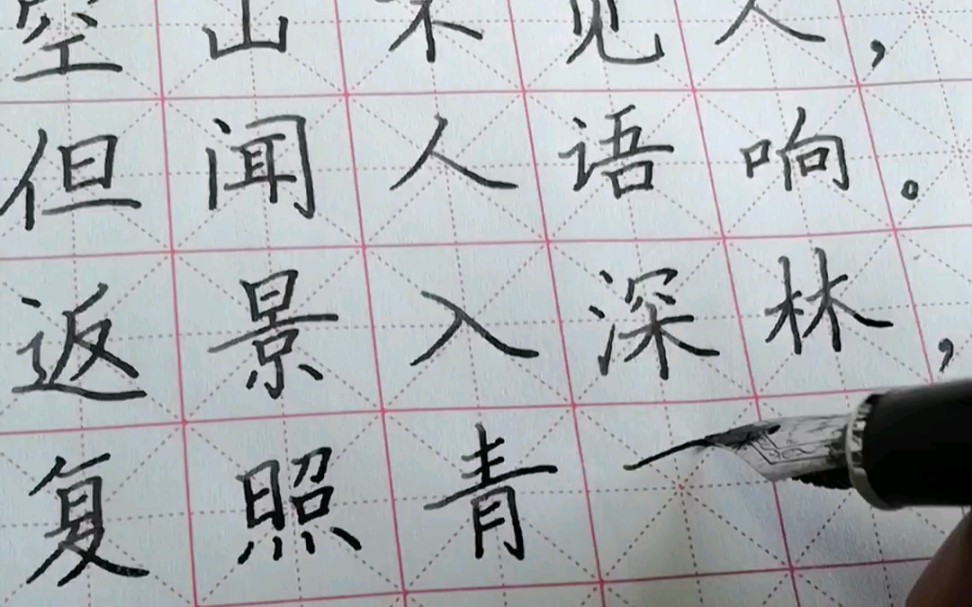 空山不见人，
但闻人语响。
返景入深林，
复照青